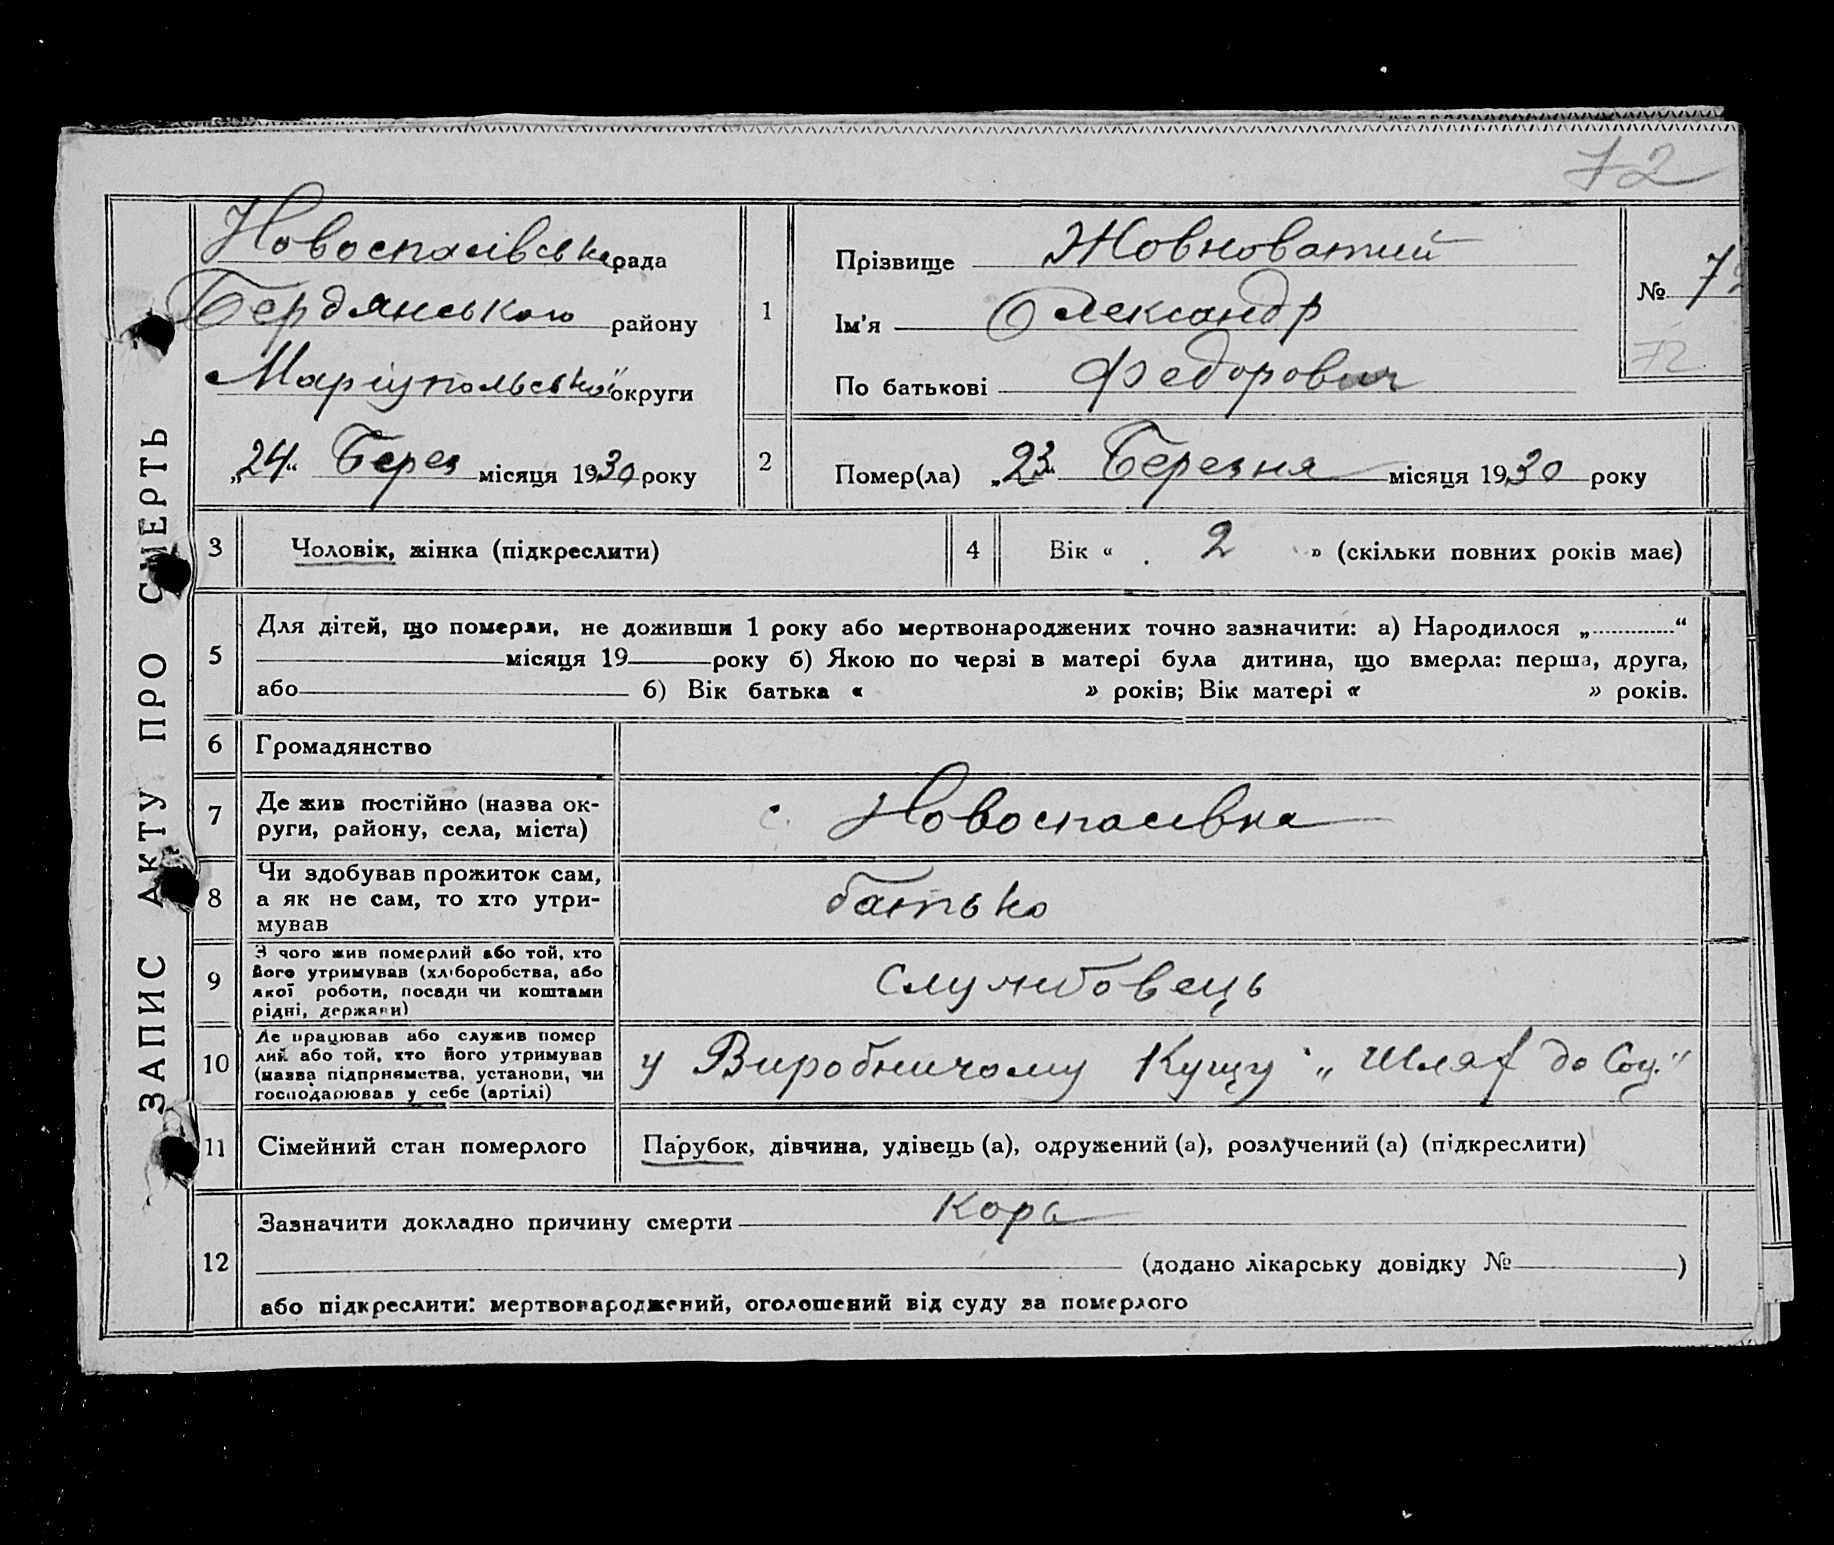 72
ЗАПИС АКТУ ПРО СМЕРТЬ
Новоспасівська рада
Бердянського району
Маріупольської округи
„24“ Берез місяця 1930 року
1
Прізвище Жовноватий
Ім'я Олександр
По батькові Федорович
№ 7
72
2
Помер(ла) „23“ Березня місяця 1930 року
3
Чоловік, жінка (підкреслити)
4
Вік « 2 » (скільки повних років має)
5
Для дітей, що померли, не доживши 1 року або мертвонароджених точно зазначити: а) Народилося „ “
місяця 19 року б) Якою по черзі в матері була дитина, що вмерла: перша, друга,
або б) Вік батька « » років; Вік матері « » років.
6
Громадянство
7
Де жив постійно (назва ок-
руги, району, села, міста)
с. Новоспасівка
8
Чи здобував прожиток сам,
а як не сам, то хто утри-
мував
батько
9
З чого жив померлий або той, хто
його утримував (хліборобства, або
якої роботи, посади чи коштами
рідні, держави)
службовець
10
Де працював або служив помер
лий або той, хто його утримував
(назва підприємства, установи, чи
господарював у себе (артілі)
у Виробничому Кущу „Шлях до Соц.“
11
Сімейний стан померлого
Парубок, дівчина, удівець (а), одружений (а), розлучений (а) (підкреслити)
12
Зазначити докладно причину смерти Кора
(додано лікарську довідку № )
або підкреслити: мертвонароджений, оголошений від суду за померлого